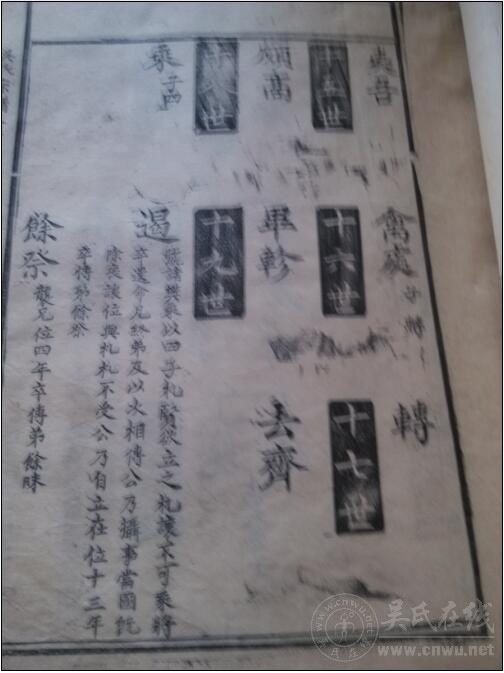 夷吾
禽處 子轉
轉
十五世
十六世
十七世
頗高
畢軫
去齊
十八世
十九世
乘 子四
遏
號諸樊乘以四子札賢欲立之札讓不可乘將
卒遺命兄終弟及以次相傳公乃攝事當國既
除喪讓位與札札不受公乃自立在位十三年
卒傳弟餘祭
餘祭 襲兄位四年卒傳弟餘昧
吴氏在线
www.cnwu.net